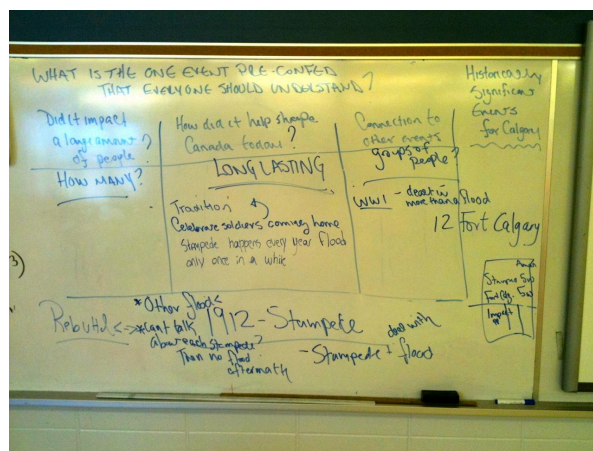 WHAT IS THE ONE EVENT PRE-CONFED
THAT EVERYONE SHOULD UNDERSTAND?
Historically
Significant
Events
for Calgary
Did it impact
a large amount
of people?
HOW MANY?
How did it help shape
Canada today?
LONG LASTING
Tradition
Celebrate soldiers coming home
Stampede happens every year flood
only once in a while
Connection to
other events
groups of
people?
WW1 - dealt in
more than a flood
12 Fort Calgary
3)
Stampede
Fort Cal.
Impact
*Other flood
Rebuild <-> *Cant talk
about each stampede?
Than no flood
aftermath
1912 - Stampede
deal with
- Stampede + flood